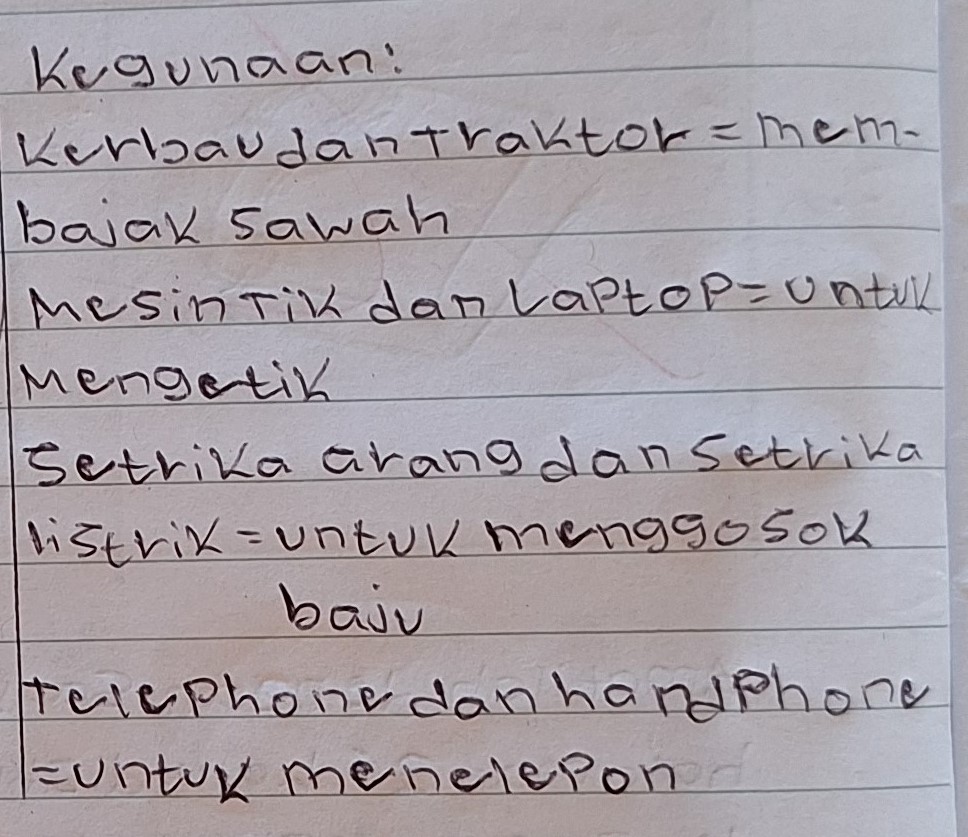 Kegunaan:
Kerbau dan Traktor = mem-
bajak sawah
Mesin Tik dan Laptop = untuk
Mengetik
Setrika arang dan Setrika
listrik = untuk menggosok
baju
Telephone dan handphone
= untuk menelepon